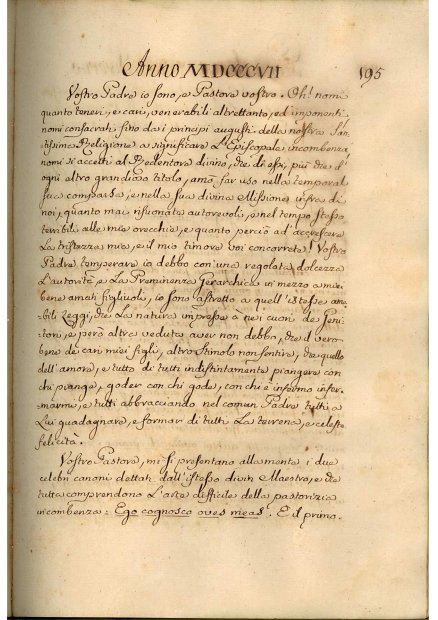 Anno MDCCCVII
195
Vostro Padre io sono, e Pastore vostro. Oh! nomi
quanto teneri, e cari, venerabili altrettanto, ed imponenti
nomi consacrati fino dai principj augusti della nostra San-
tissima Religione a significare L'Episcopale incombenza
nomi sì accetti al Redentore divino, che di essi, più che d'
ogni altro grandioso titolo, amò far uso nella temporal
sua comparsa, e nella sua divina Missione infra di
noi, quanto mai risuonate autorevoli, e nel tempo stesso
terribili alle mie orecchie, e quanto perciò ad accrescere
La tristezza mia, e il mio timore voi concorrete! Vostro
Padre temperare io debbo con una regolata dolcezza
L'autorità, e La Preminenza Gerarchica in mezzo a miei
bene amati figliuoli, io sono astretto a quell'istesse ama-
bili Leggi, che La natura impresse ne' cuori de Geni-
tori, e però altra veduta aver non debbo, che il vero
bene de cari miei figli, altro stimolo non sentire, che quello
dell'amore, e tutto di tutti indistintamente piangere con
chi piange, goder con chi gode, con chi è infermo infer-
marmi, e tutti abbracciando nel comun Padre tutti a
Lui guadagnare, e formar di tutti La terrena, e celeste
felicità.
Vostro Pastore, mi si presentano alla mente i due
celebri canoni dettati dall'istesso divin Maestro, e che
tutta comprendono L'arte difficile della pastorizia
incombenza: Ego cognosco oves meas. È il primo.